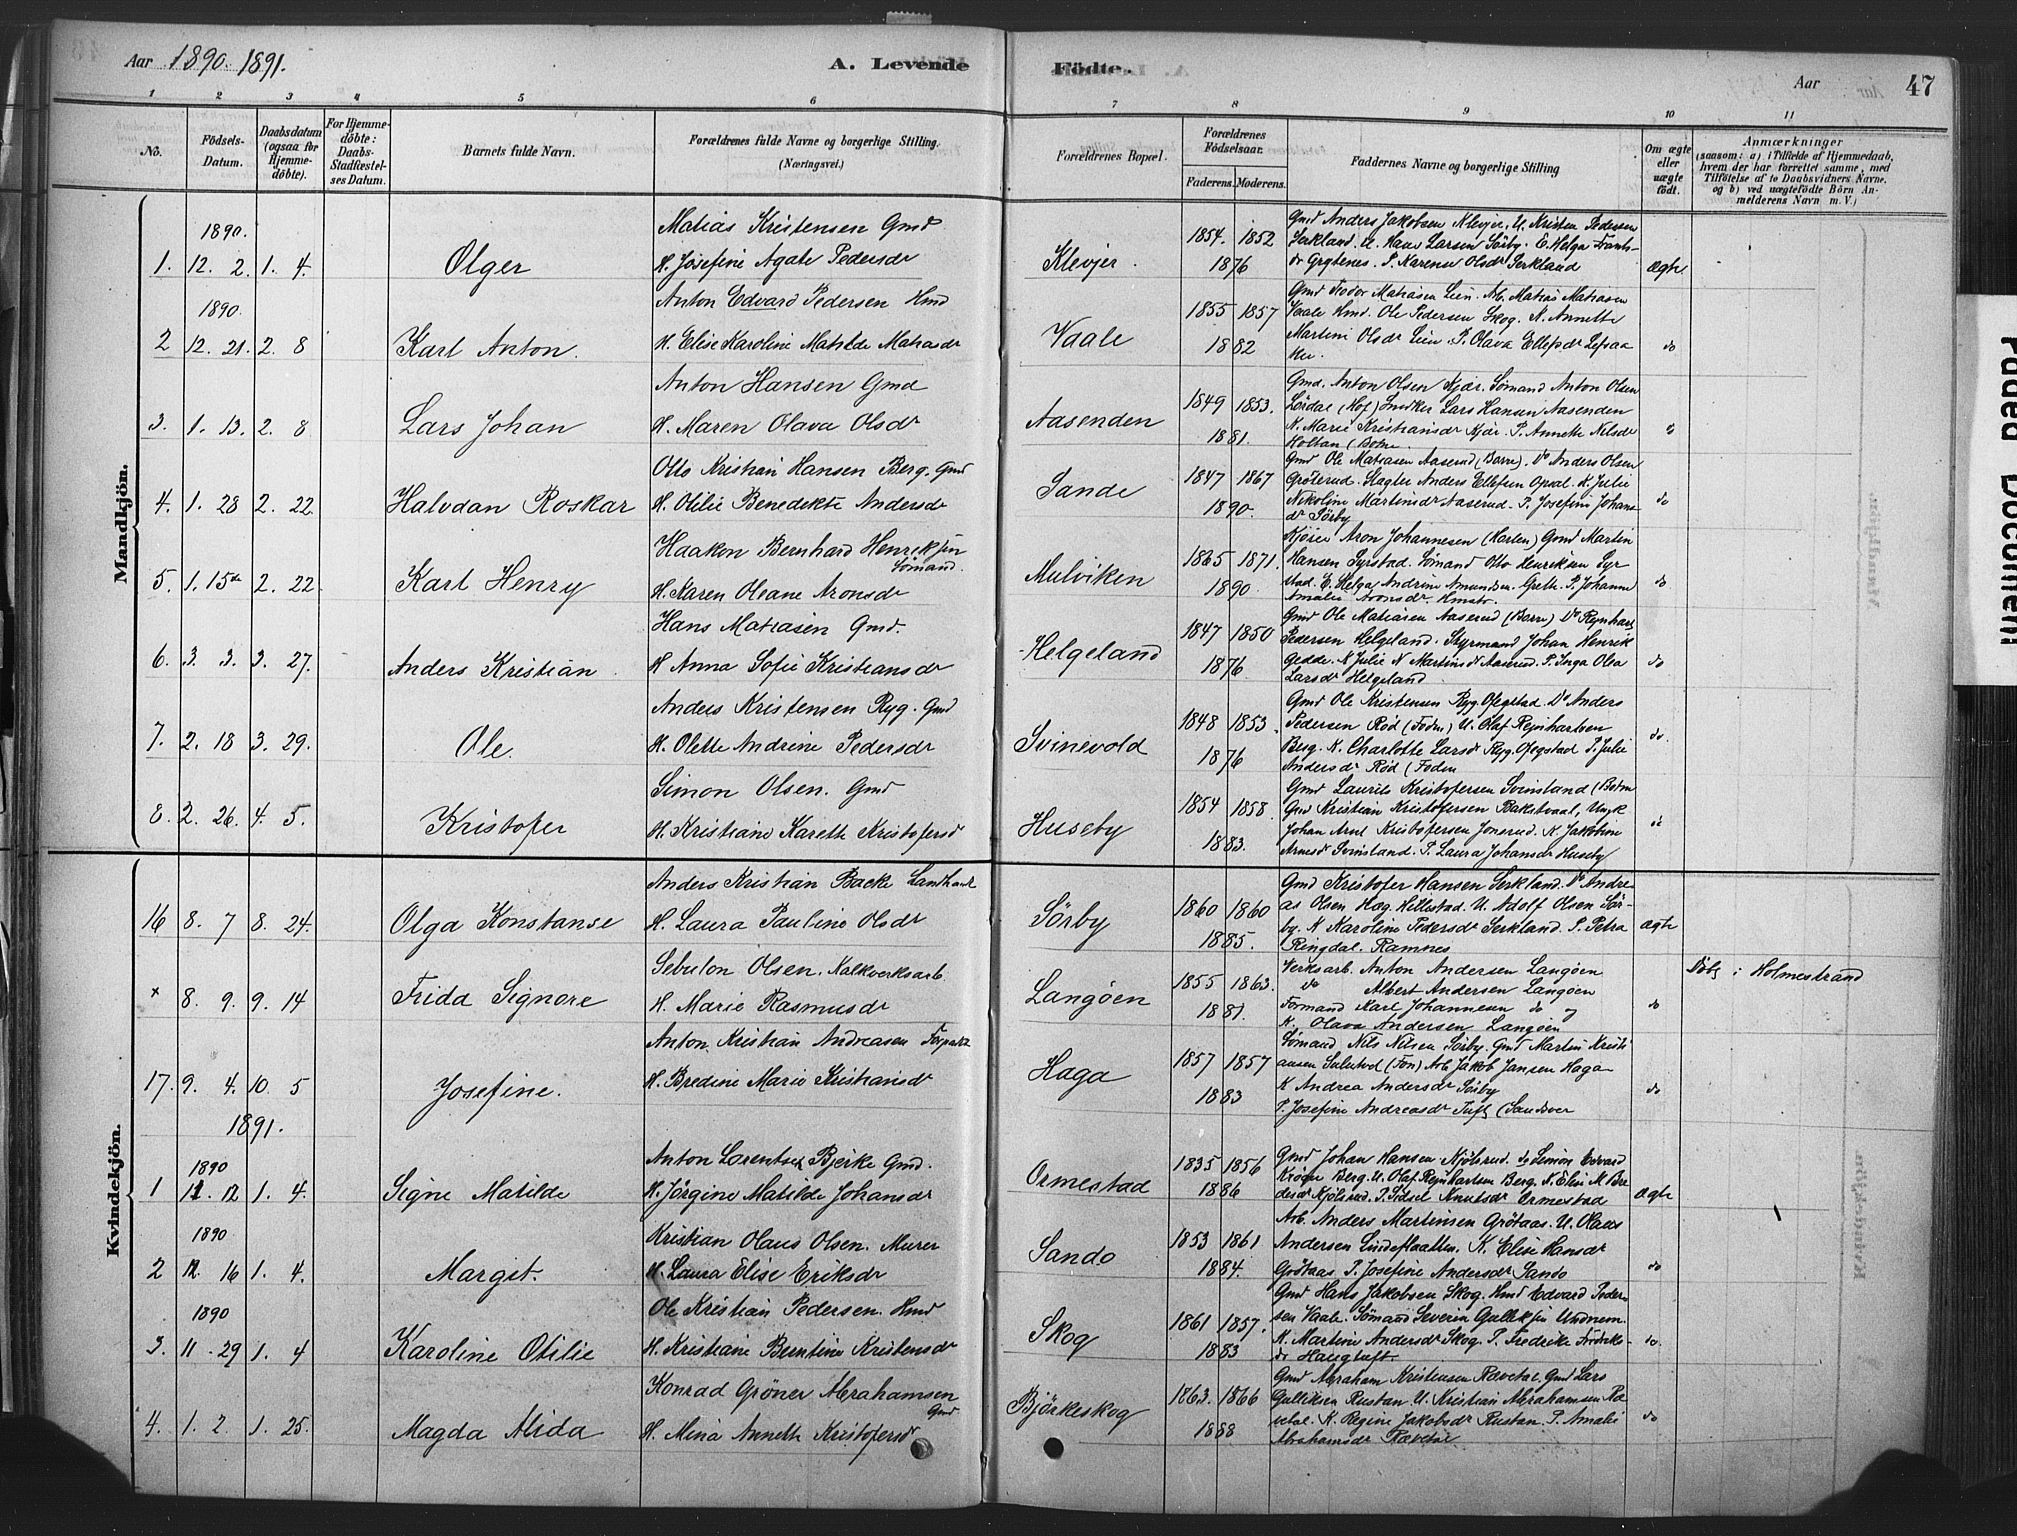 Aar 1890. 1891.
A. Levende Födte.
Aar 47
1 2 3 4 5 6 7 8 9 10 11
No.
Födsels-Datum.
Daabsdatum (ogsaa for Hjemmedöbte).
For Hjemmedöbte: Daabs-Stadfæstelses Datum.
Barnets fulde Navn.
Forældrenes fulde Navne og borgerlige Stilling. (Næringsvei.)
Forældrenes Bopæl.
Forældrenes Födselsaar.
Faderens. Moderens.
Faddernes Navne og borgerlige Stilling
Om ægte eller uægte födt.
Anmærkninger
(saasom: a) i Tilfælde af Hjemmedaab,
hvem der har forrettet samme, med
Tilföielse af to Daabsvidners Navne,
og b) ved uægtefödte Börn An-
melderens Navn m. V.)
Mandkjön.
1890.
1. 12. 2. 1. 4. Olger
Matias Kristensen Gmd
H. Josefine Agate Pedersdr
Klevjer. 1854. 1852 1876
Gmd Anders Jakobsen Klevjer. U. Kristen Pedersen
Serkland. U. Hans Larsen Sörby. E. Helga
Grytenes. P. Karense Olsdr Serkland
Ægte
1890.
2 12. 21. 2. 8 Karl Anton.
Anton Edvard Pedersen Hmd
H. Elise Karoline Matilde Matiasdr
Vaale 1855 1857 1882
Gmd Teodor Matiasen Lien. Arb. Matias Matiasen
Vaale Hmd. Ole Pedersen Skog. K. Annette
Martine Olsdr Lien. P. Olava Ellefsdr
do
3. 1. 13. 2. 8 Lars Johan
Anton Hansen Gmd
H. Maren Olava Olsdr
Aasenden 1849 1853. 1881.
Gmd. Anton Olsen Kjær. Sömand Anton Olsen
Lördal (Hof) Snedker Lars Hansen Aasenden
K. Marie Kristiansdr Kjær. P. Annette Nilsdr
Holtan (Botne.
do
4. 1. 28 2. 22. Halvdan Roskar
Otto Kristian Hansen Berg. Gmd
H. Otilie Benedikte Andersdr
Sande 1847 1867 1890.
Gmd Ole Matiasen Aaserud (Borre). Do Anders Olsen
Gröterud. Slagter Anders Ellefsen Opsal. K. Julie
Nikoline Martinsdr Aaserud. P. Josefine Johans
dr Sörby
do
5. 1. 15de 2. 22. Karl Henry
Haakon Bernhard Henriksen
Sömand.
H. Karen Oleane Aronsdr
Mulviken 1865 1871. 1890.
Aron Johannesen (Horten) Gmd Martin
Hansen Syrstad. Sömand Otto Henriksen Syr
stad. E. Helga Andrine Amundsen. Grette. P. Johanne
Amalie Aronsdr. Hmstr.
do
6. 3. 3. 3. 27. Anders Kristian.
Hans Matiasen Gmd.
H Anna Sofie Kristiansdr
Helgeland 1847 1850 1876.
Gmd Ole Matiasen Aaserud (Borre) Do Reinhart
Pedersen Helgeland. Styrmand Johan Henrik
Gedde. K Julie N Martinsdr Aaserud. P. Inga Olsa
Larsdr Helgeland
do
7. 2. 18 3. 29. Ole.
Anders Kristensen Ryg. Gmd
H. Olette Andrine Pedersdr
Svinevold 1848 1853. 1876
Gmd Ole Kristensen Ryg. Ofegstad. Do Anders
Pedersen Röd (Foden) U. Olaf Reinhartsen
Berg. K. Charlotte Larsdr Ryg. Ofegstad P. Julie
Andersdr Röd (Foden
do.
8. 2. 26. 4. 5. Kristofer
Simon Olsen. Gmd
H. Kristiane Karette Kristofersdr
Huseby 1854 1858. 1883.
Gmd Laurits Kristofersen Svinsland (Botne
Gmd Kristian Kristofersen Bakstvaal, Ungk
Johan Arnt Kristofersen Jonsrud. K. Jakobine
Arnesdr Svinsland. P. Laura Johansdr Huseby
do
Kvindekjön.
16 8. 7 8. 24. Olga Konstanse
Anders Kristian Backe Landhand
H. Laura Pauline Olsdr
Sörby 1860 1860 1885.
Gmd Kristofer Hansen Serkland. Do Andre
as Olsen Hæg. Hillestad. U. Adolf Olsen Sör-
by. K Karoline Pedersdr Serkland. P. Petra
Ringdal. Ramnes
Ægte
× 8. 9. 9. 14 Frida Signore
Sebulon Olsen. Kalkverksarb.
H. Marie Rasmusdr
Langöen 1855 1863. 1881.
Verksarb. Anton Andersen Langöen
do Albert Andersen Langöen
Formand Karl Johannesen do og
K. Olava Andersen Langöen
do
Döbt i Holmestrand
17. 9. 4. 10. 5 Josefine.
Anton Kristian Andreasen Forpakter
H. Bredine Marie Kristiansdr
Haga 1857 1857 1883
Sömand Nils Nilsen Sörby. Gmd Martin Kristi
ansen Sulutvd (Fon) Arb Jakob Jansen Haga
K Andrea Andersdr Sörby
P. Josefine Andreasdr Tuft (Sandsver
do
1891.
1890
1 11. 12 1. 4. Signe Matilde
Anton Lorentsen Bjerke Gmd.
H. Jörgine Matilde Johansdr
Ormestad 1835 1856 1886
Gmd Johan Hansen Kjölsrud. do Simon Edvard
Berg. U. Olaf Reinhartsen Berg. K. Elise M. Pe
dersdr Kjölsrud. P. Sidsel Knutsdr Ormestad
Ægte
1890
2 12 16 1. 4. Margit.
Kristian Olaus Olsen. Murer
H. Laura Elise Eriksdr
Sando 1853 1861 1884.
Arb. Anders Martinsen Grötaas. U. Olaus
Andersen Lindeflaatten. K. Elise Hansdr
Grötaas P. Josefine Andersdr Sando
do
1890
3. 11. 29 1. 4 Karoline Otilie
Ole Kristian Pedersen. Hmd
H. Kristiane Berntine Kristensdr
Skog 1861 1857. 1883
Gmd Hans Jakobsen Skog. Hmd Edvard Peder-
sen Vaale. Sömand Severin Gulliksen Undnem.
K. Martine Andersdr Skog. P. Fredrike Fredriks-
dr Haugtuft.
do.
4. 1. 2. 1. 25. Magda Alida
Konrad Gröner Abrahamsen
Gmd
H. Mina Annette Kristofersdr
Björkeskog 1863. 1866 1888
Gmd Abraham Kristensen Rævetal. Gmd Lars
Gulliksen Rustan. U. Kristian Abrahamsen Ræ
vetal. K. Regine Jakobsdr Rustan. P. Amalie
Abrahamsdr Rævetal
do
Faded Document